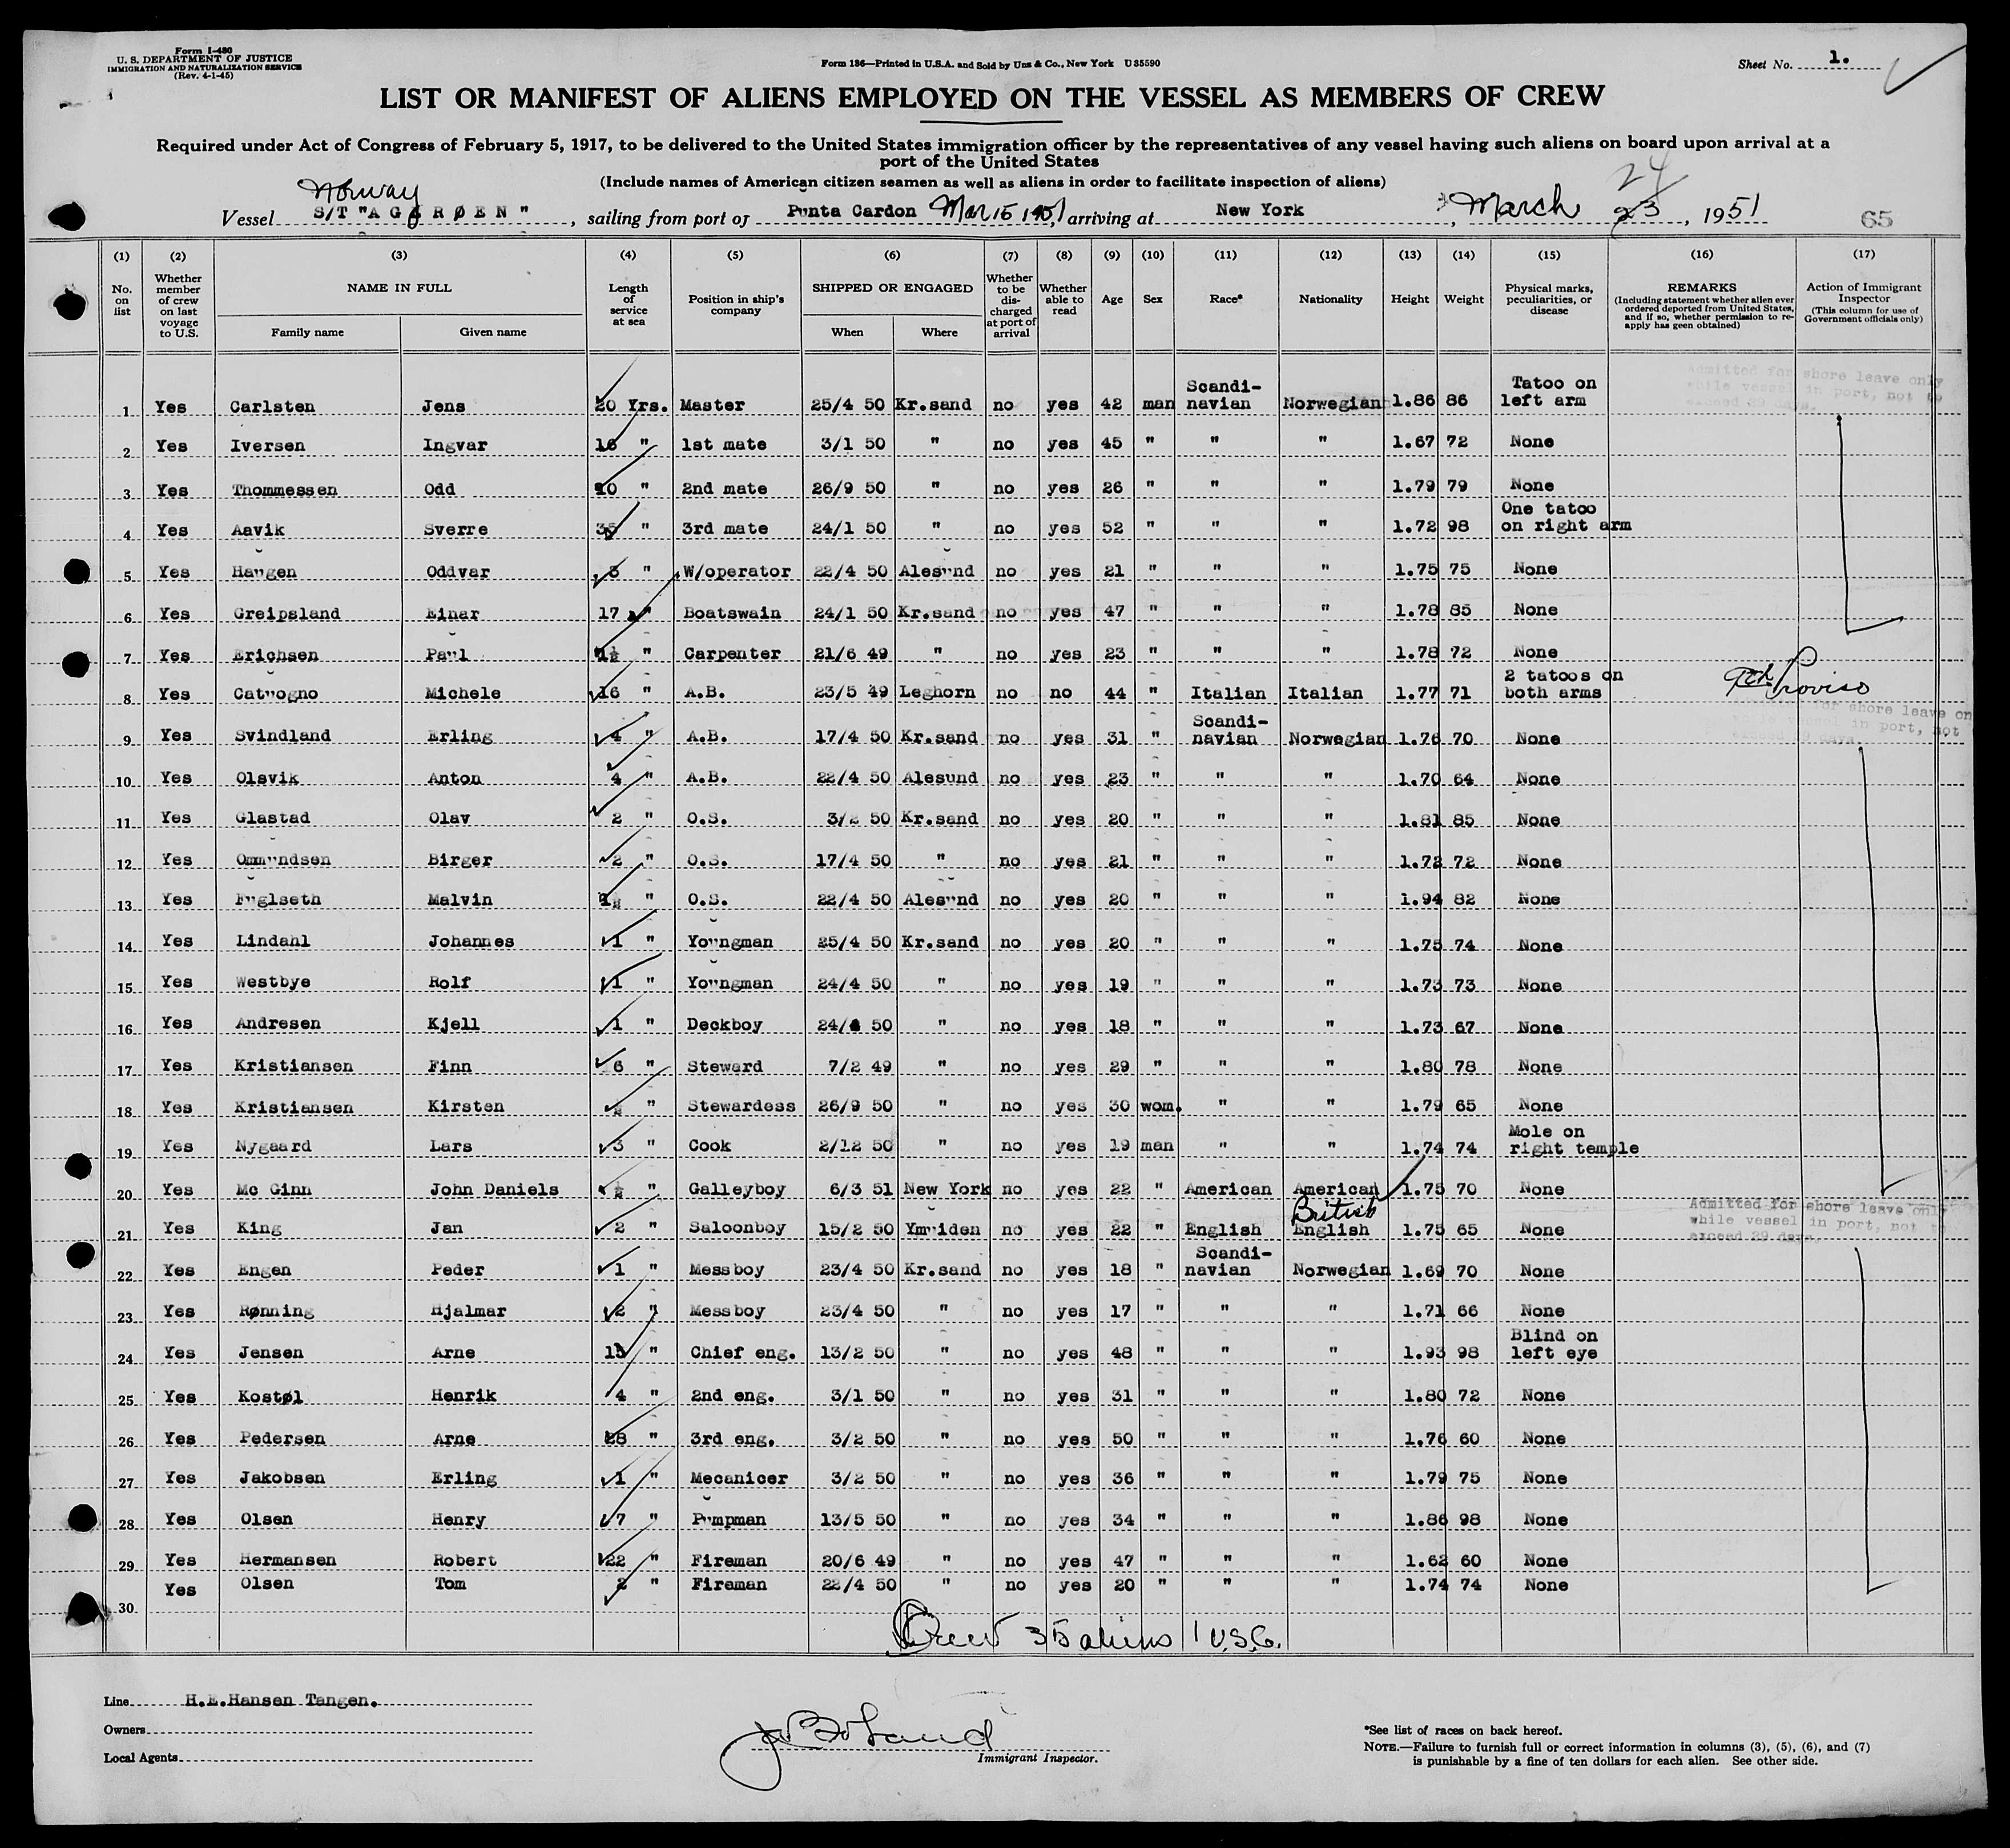 Form I-480
U. S. DEPARTMENT OF JUSTICE
IMMIGRATION AND NATURALIZATION SERVICE
(Rev. 4-1-45)
Form 136—Printed in U.S.A. and Sold by Unz & Co., New York U35590
Sheet No. 1.
LIST OR MANIFEST OF ALIENS EMPLOYED ON THE VESSEL AS MEMBERS OF CREW
Required under Act of Congress of February 5, 1917, to be delivered to the United States immigration officer by the representatives of any vessel having such aliens on board upon arrival at a
port of the United States
(Include names of American citizen seamen as well as aliens in order to facilitate inspection of aliens)
Norway 24
Vessel S/T "AGERØEN", sailing from port of Punta Cardon Mar 15 1951, arriving at New York, March 23, 1951 65
(1) (2) (3) (4) (5) (6) (7) (8) (9) (10) (11) (12) (13) (14) (15) (16) (17)
No. on list
Whether member of crew on last voyage to U.S.
NAME IN FULL
Family name Given name
Length of service at sea
Position in ship's company
SHIPPED OR ENGAGED
When Where
Whether to be discharged at port of arrival
Whether able to read
Age
Sex
Race*
Nationality
Height
Weight
Physical marks, peculiarities, or disease
REMARKS
(Including statement whether alien ever ordered deported from United States, and if so, whether permission to re-apply has geen obtained)
Action of Immigrant Inspector
(This column for use of Government officials only)
Admitted for shore leave only
while vessel in port, not to
exceed 29 days.
1 Yes Carlsten Jens 20 Yrs. Master 25/4 50 Kr.sand no yes 42 man Scandi-navian Norwegian 1.86 86 Tatoo on left arm
2 Yes Iversen Ingvar 16 " 1st mate 3/1 50 " no yes 45 " " " 1.67 72 None
3 Yes Thommessen Odd 10 " 2nd mate 26/9 50 " no yes 26 " " " 1.79 79 None
4 Yes Aavik Sverre 35 " 3rd mate 24/1 50 " no yes 52 " " " 1.72 98 One tatoo on right arm
5 Yes Haugen Oddvar 3 " W/operator 22/4 50 Alesund no yes 21 " " " 1.75 75 None
6 Yes Greipsland Einar 17 " Boatswain 24/1 50 Kr.sand no yes 47 " " " 1.78 85 None
7 Yes Erichsen Paul 1½ " Carpenter 21/6 49 " no yes 23 " " " 1.78 72 None
8 Yes Catuogno Michele 16 " A.B. 23/5 49 Leghorn no no 44 " Italian Italian 1.77 71 2 tatoos on both arms 9th Proviso
Admitted for shore leave on
while vessel in port, not
exceed 29 days
9 Yes Svindland Erling 4 " A.B. 17/4 50 Kr.sand no yes 31 " Scandi-navian Norwegian 1.76 70 None
10 Yes Olsvik Anton 4 " A.B. 22/4 50 Alesund no yes 23 " " " 1.70 64 None
11 Yes Glastad Olav 2 " O.S. 3/2 50 Kr.sand no yes 20 " " " 1.81 85 None
12 Yes Ommundsen Birger 2 " O.S. 17/4 50 " no yes 21 " " " 1.72 72 None
13 Yes Fuglseth Malvin 1½ " O.S. 22/4 50 Alesund no yes 20 " " " 1.94 82 None
14 Yes Lindahl Johannes 1 " Youngman 25/4 50 Kr.sand no yes 20 " " " 1.75 74 None
15 Yes Westbye Rolf 1 " Youngman 24/4 50 " no yes 19 " " " 1.73 73 None
16 Yes Andresen Kjell 1 " Deckboy 24/4 50 " no yes 18 " " " 1.73 67 None
17 Yes Kristiansen Finn 6 " Steward 7/2 49 " no yes 29 " " " 1.80 78 None
18 Yes Kristiansen Kirsten ½ " Stewardess 26/9 50 " no yes 30 wom. " " 1.79 65 None
19 Yes Nygaard Lars 3 " Cook 2/12 50 " no yes 19 man " " 1.74 74 Mole on right temple
20 Yes Mc Ginn John Daniels ½ " Galleyboy 6/3 51 New York no yes 22 " American American 1.75 70 None
Admitted for shore leave only
while vessel in port, not to
exceed 29 days.
British
21 Yes King Jan 2 " Saloonboy 15/2 50 Ymuiden no yes 22 " English English 1.75 65 None
22 Yes Engen Peder 1 " Messboy 23/4 50 Kr.sand no yes 18 " Scandi-navian Norwegian 1.69 70 None
23 Yes Rønning Hjalmar 2 " Messboy 23/4 50 " no yes 17 " " " 1.71 66 None
24 Yes Jensen Arne 15 " Chief eng. 13/2 50 " no yes 48 " " " 1.93 98 Blind on left eye
25 Yes Kostøl Henrik 4 " 2nd eng. 3/1 50 " no yes 31 " " " 1.80 72 None
26 Yes Pedersen Arne 28 " 3rd eng. 3/2 50 " no yes 50 " " " 1.76 60 None
27 Yes Jakobsen Erling 1 " Mecanicer 3/2 50 " no yes 36 " " " 1.79 75 None
28 Yes Olsen Henry 7 " Pumpman 13/5 50 " no yes 34 " " " 1.86 98 None
29 Yes Hermansen Robert 22 " Fireman 20/6 49 " no yes 47 " " " 1.62 60 None
30 Yes Olsen Tom 2 " Fireman 22/4 50 " no yes 20 " " " 1.74 74 None
Crew 35 aliens 1 U.S.C.
Line H.E.Hansen Tangen.
Owners
Local Agents
Immigrant Inspector.
*See list of races on back hereof.
NOTE.—Failure to furnish full or correct information in columns (3), (5), (6), and (7)
is punishable by a fine of ten dollars for each alien. See other side.